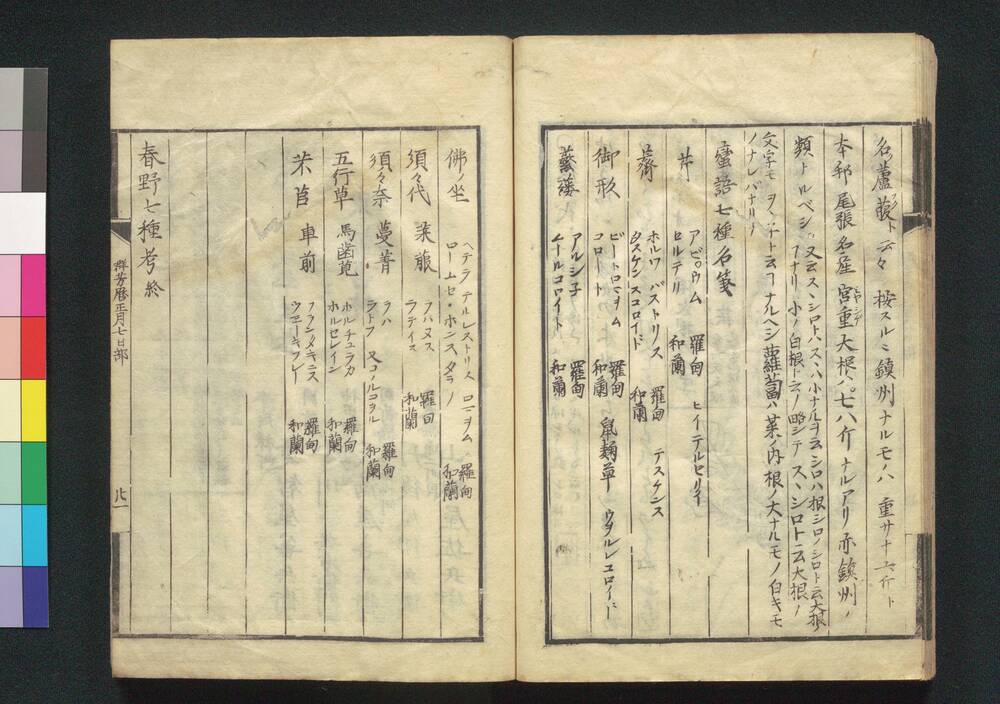 名蘆菔ト云々 按スルニ鎮州ナルモノハ 重サ十六斤ト
本邦尾張名産 宮重大根ハ七八斤ナルアリ亦鎮州ノ
類トルベシ 又云スヽシロトハスヽハ小ナルヲ云シロハ根シロノシロト云大根
フナリ小ノ白根ト云ノ略シテスヽシロト云大根ノ
文字モヲヽ子ト云フナルヘシ蘿蔔ハ菜ノ内根ノ大ナルモノ白キモ
ノナレバナリ
蛮語七種名箋
芹 アピウム 羅甸 ヒイテルセリイ
セルデリ 和蘭
薺 ホルサ パストリス 羅甸 テスケンス
タスケンスコロイド 和蘭
御形 ビートロニヲム 羅甸 鼠麹草 ウヲルレコロイド
コロート 和蘭
蘩蔞 アルシ子 羅甸
ムールコロイト 和蘭
佛ノ坐 ヘデラ テルレストリス 羅甸
ロームセ・ホンスタラ ロニヲム 和蘭
須々代 菜菔 ラハヌス 羅甸
ラデイス 和蘭
須々奈 蔓菁 ラハ 羅甸
ラトフ 又コノルコヲル 和蘭
五行草 馬齒莧 ホルチュラカ 羅甸
ホルセレイン 和蘭
芣苢 車前 フランタキニス 羅甸
ウエーキフレー 和蘭
春野七種考終
群芳暦正月七日部
廿一